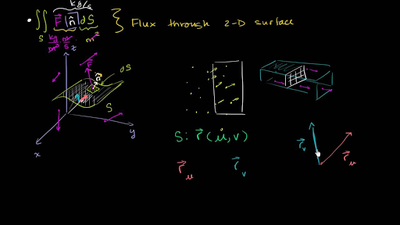 kg/s
∬ F⃗ · n̂ dS } Flux through 2-D surface
S kg/m² m/s m²
z
dS
F⃗
n̂
S
x y
S: r⃗(u,v)
r⃗ᵤ r⃗ᵥ
r⃗ᵥ r⃗ᵤ